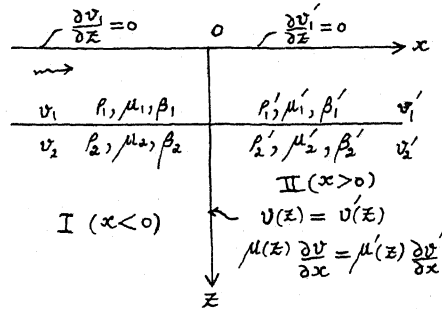 ∂v₁/∂z = 0
0
∂v₁′/∂z = 0
x
v₁ ρ₁, μ₁, β₁
ρ₁′, μ₁′, β₁′ v₁′
v₂ ρ₂, μ₂, β₂
ρ₂′, μ₂′, β₂′ v₂′
I (x<0)
II (x>0)
v(z) = v′(z)
μ(z) ∂v/∂x = μ′(z) ∂v′/∂x
z